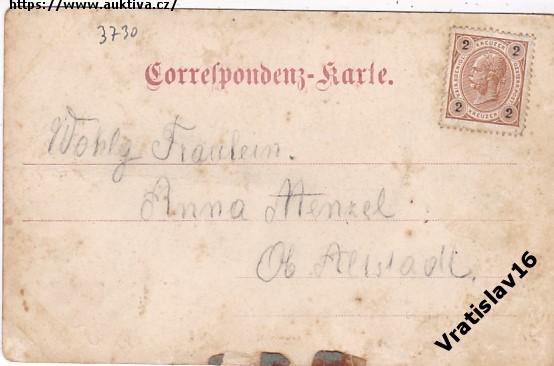 https://www.auktiva.cz/
3730
Correspondenz-Karte.
2 KREUZER 2
2 KREUZER 2
Wohlg Fräulein.
Anna Menzel
Ob Altstadt.
Vratislav16